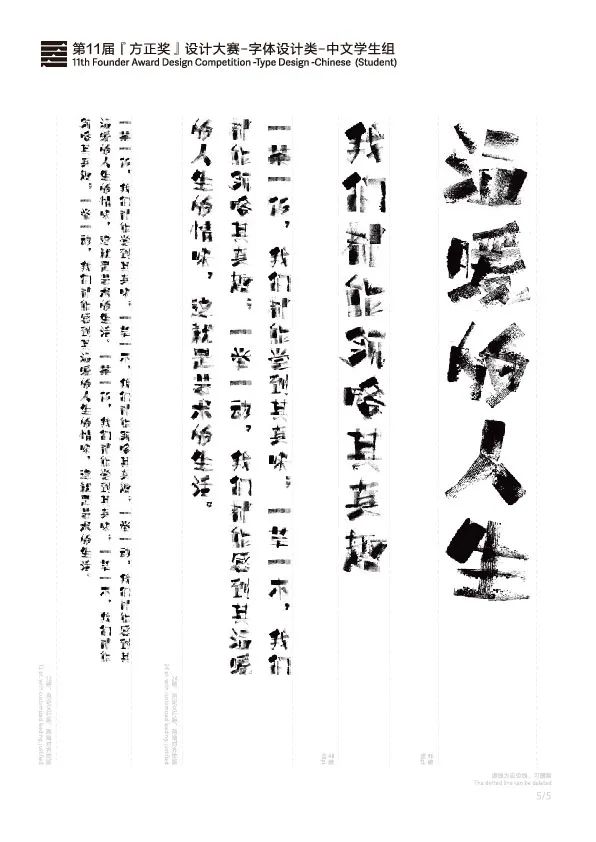 第11届『方正奖』设计大赛-字体设计类-中文学生组
11th Founder Award Design Competition -Type Design -Chinese (Student)
温暖的人生
我们都能领略其真趣
一茶一饭，我们都能尝到其真味。一草一木，我们
都能领略其真趣。一举一动，我们都能感到其温暖
的人生的情味，这就是艺术的生活。
一茶一饭，我们都能尝到其真味。一草一木，我们都能领略其真趣。一举一动，我们都能感到其
温暖的人生的情味，这就是艺术的生活。一茶一饭，我们都能尝到其真味。一草一木，我们都能
领略其真趣。一举一动，我们都能感到其温暖的人生的情味，这就是艺术的生活。
The dotted line can be deleted
5/5